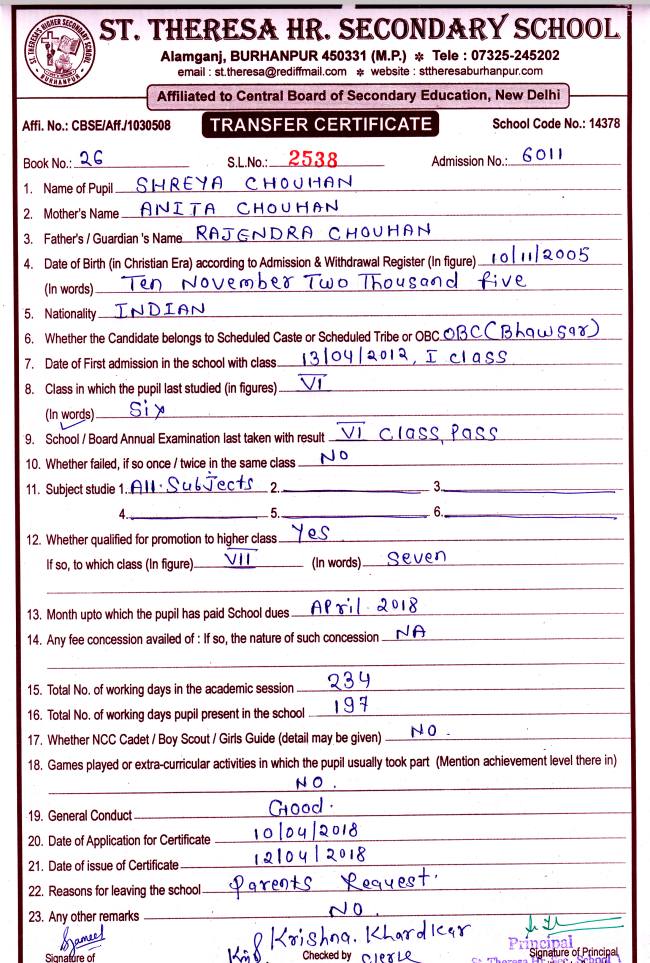 ST. THERESA HR. SECONDARY SCHOOL
Alamganj, BURHANPUR 450331 (M.P.) ✻ Tele : 07325-245202
email : st.theresa@rediffmail.com ✻ website : sttheresaburhanpur.com
Affiliated to Central Board of Secondary Education, New Delhi
Affi. No.: CBSE/Aff./1030508 TRANSFER CERTIFICATE School Code No.: 14378
Book No.: 26 S.L.No.: 2538 Admission No.: 6011
1. Name of Pupil SHREYA CHOUHAN
2. Mother's Name ANITA CHOUHAN
3. Father's / Guardian 's Name RAJENDRA CHOUHAN
4. Date of Birth (in Christian Era) according to Admission & Withdrawal Register (In figure) 10/11/2005
(In words) Ten November Two Thousand five
5. Nationality INDIAN
6. Whether the Candidate belongs to Scheduled Caste or Scheduled Tribe or OBC OBC (Bhawsar)
7. Date of First admission in the school with class 13/04/2012, I class
8. Class in which the pupil last studied (in figures) VI
(In words) Six
9. School / Board Annual Examination last taken with result VI Class, Pass
10. Whether failed, if so once / twice in the same class NO
11. Subject studie 1. All Subjects 2. 3.
4. 5. 6.
12. Whether qualified for promotion to higher class Yes
If so, to which class (In figure) VII (In words) Seven
13. Month upto which the pupil has paid School dues April 2018
14. Any fee concession availed of : If so, the nature of such concession NA
15. Total No. of working days in the academic session 234
16. Total No. of working days pupil present in the school 197
17. Whether NCC Cadet / Boy Scout / Girls Guide (detail may be given) NO.
18. Games played or extra-curricular activities in which the pupil usually took part (Mention achievement level there in)
NO.
19. General Conduct Good.
20. Date of Application for Certificate 10/04/2018
21. Date of issue of Certificate 12/04/2018
22. Reasons for leaving the school Parents Request.
23. Any other remarks NO.
Krishna. Khardkar
Principal
Signature of Checked by Clerk Signature of Principal
St. Theresa Hr. Sec. School